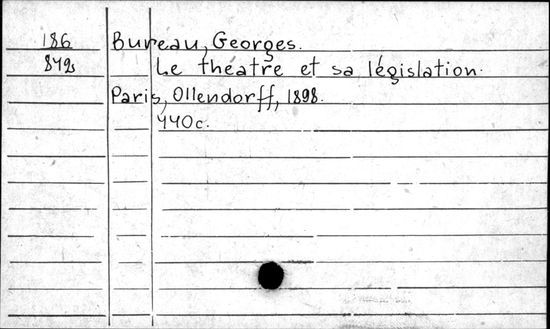 186 Bureau, Georges.
842 Le théatre et sa législation.
Paris, Ollendorff, 1898.
440 c.